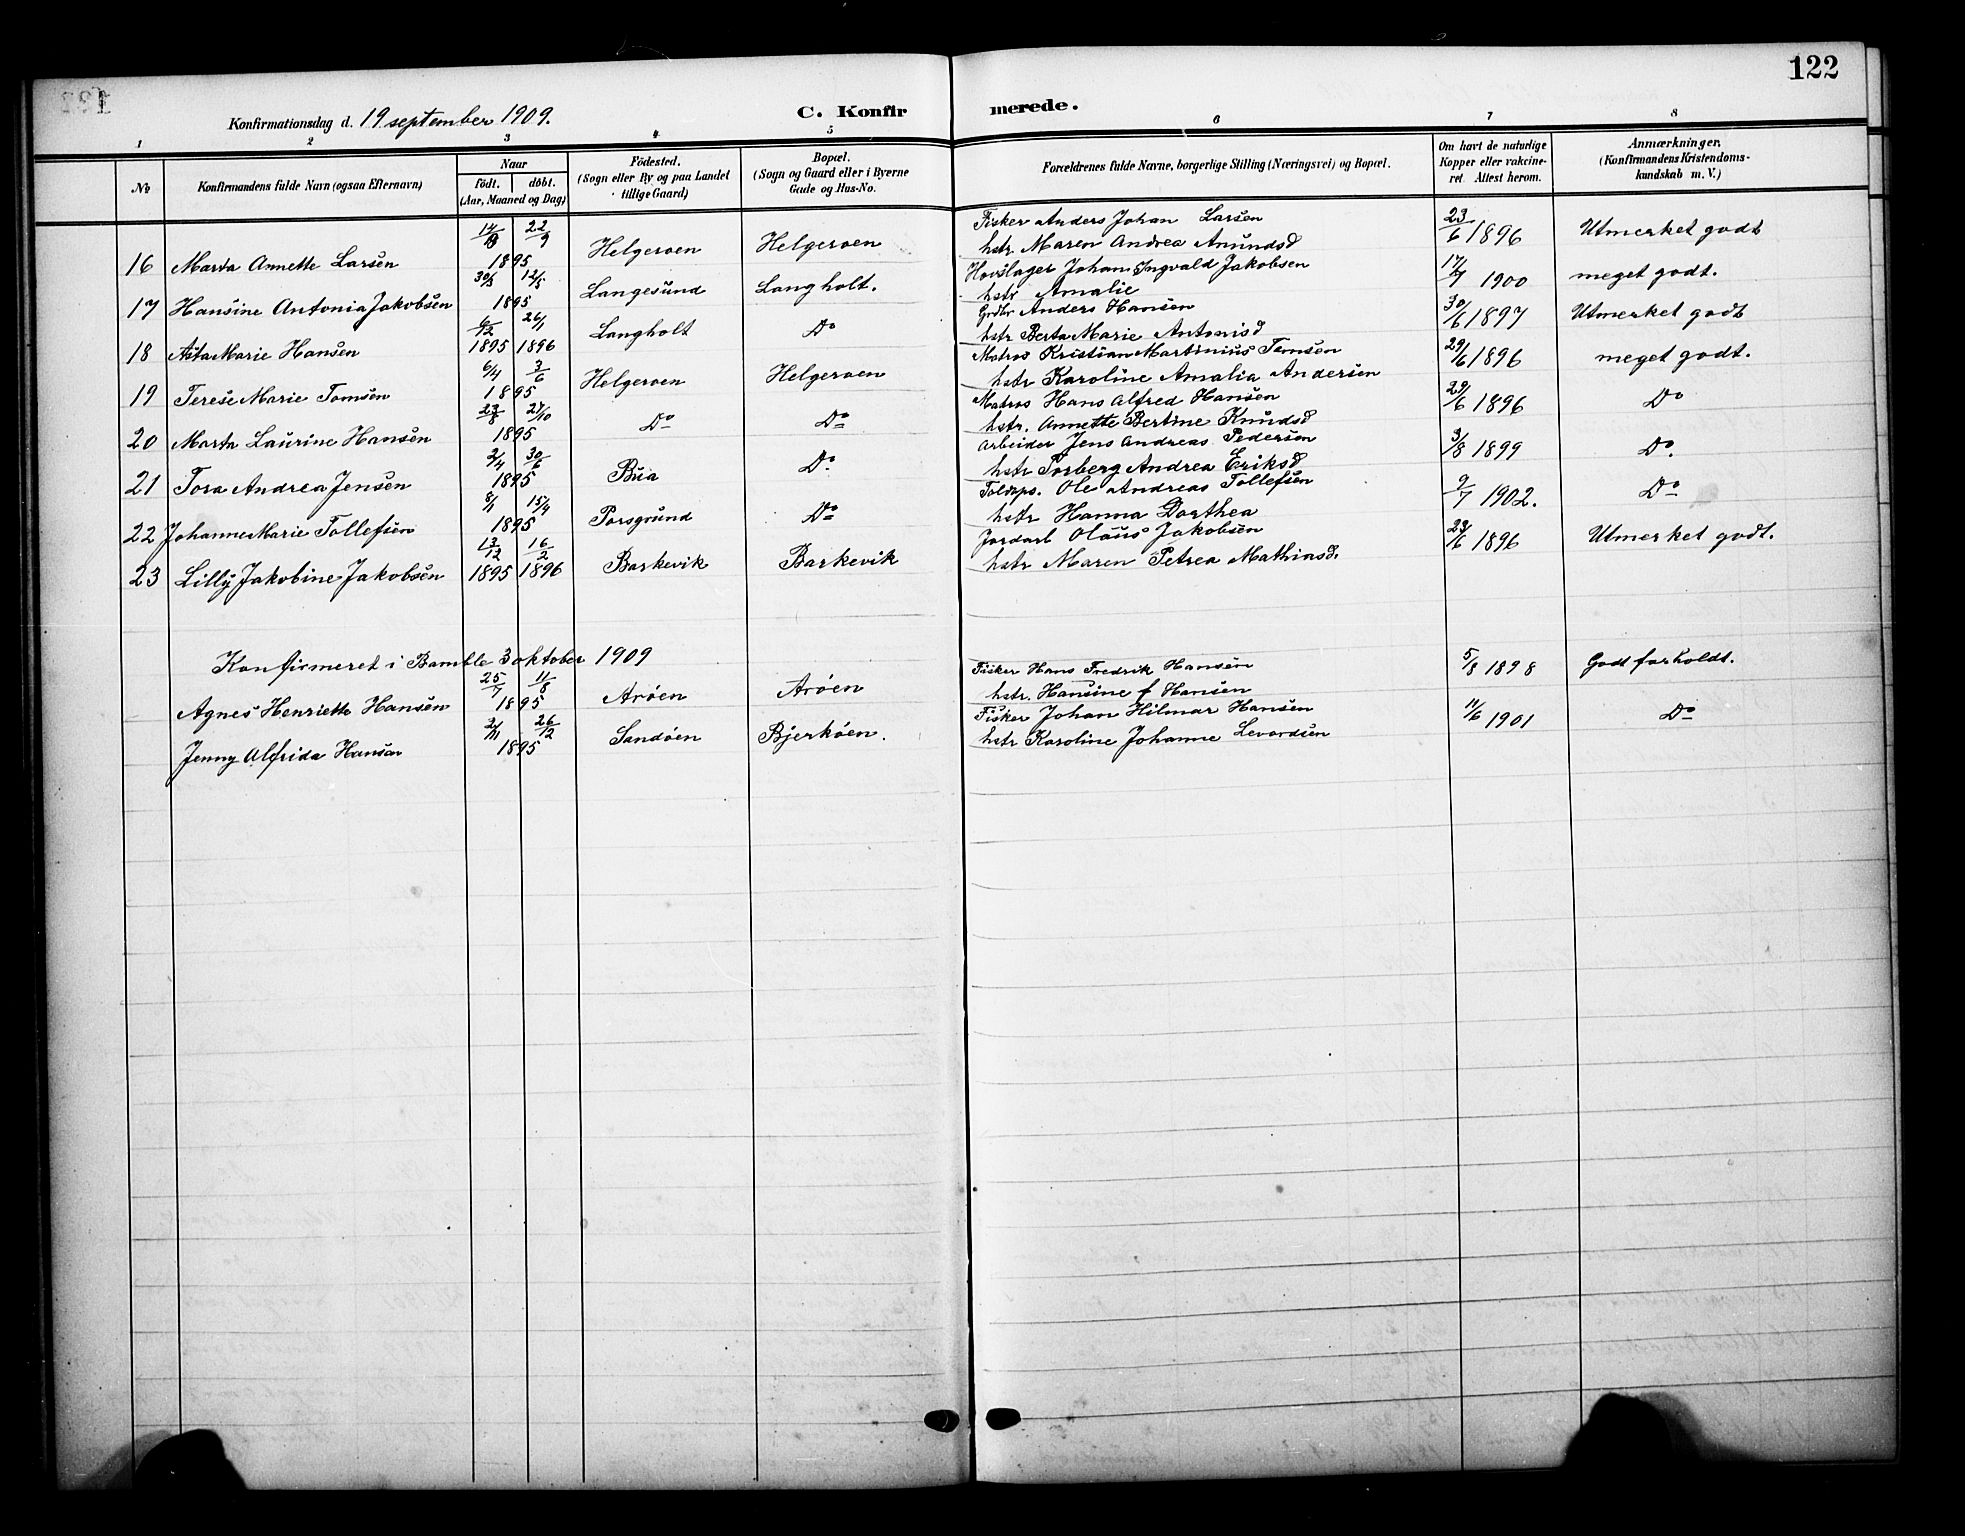 122
Konfirmationsdag d. 19 september 1909.
C. Konfirmerede.
1 2 3 4 5 6 7 8
No
Konfirmandens fulde Navn (ogsaa Efternavn)
Naar
födt. döbt.
(Aar, Maaned og Dag)
Födested.
(Sogn eller By og paa Landet
tillige Gaard)
Bopæl.
(Sogn og Gaard eller i Byerne
Gade og Hus-No.
Forældrenes fulde Navne, borgerlige Stilling (Næringsvei) og Bopæl.
Om havt de naturlige
Kopper eller vakcine-
ret. Attest herom.
Anmærkninger.
(Konfirmandens Kristendoms-
kundskab m. V.)
16 Marta Annette Larsen 22/9 1895 Helgeroen Helgeroen
Fisker Anders Johan Larsen
hstr Maren Andrea Amundsd
23/6 1896 Utmerket godt
17 Hansine Antonia Jakobsen 30/3 12/5 1895 Langesund Langholt.
Hovslager Johan Ingvald Jakobsen
hstr Amalie
17/7 1900 meget godt.
18 Asta Marie Hansen 6/12 1895 26/1 1896 Langholt Do
Grdbr Anders Hansen
hstr Berta Marie Antonisd
30/6 1897 Utmerket godt
19 Terese Marie Tomsen 6/4 3/6 1895 Helgeroen Helgeroen
Matros Kristian Martinius Tomsen
hstr Karoline Amalia Andersen
29/6 1896 meget godt.
20 Marta Laurine Hansen 23/8 27/10 1895 Do Do
Matros Hans Alfred Hansen
hstr. Annette Bertine Knudsd
29/6 1896 Do
21 Tora Andrea Jensen 2/4 30/6 1895 Bua Do
Arbeider Jens Andreas Pedersen
hstr Torberg Andrea Eriksd
3/8 1899 Do.
22 Johanne Marie Tollefsen 8/1 15/4 1895 Porsgrund Do
Toldops. Ole Andreas Tollefsen
hstr Hanna Dorthea
9/7 1902. Do
23 Lilly Jakobine Jakobsen 13/12 1895 16/2 1896 Barkevik Barkevik
Jordarb Olaus Jakobsen
hstr Maren Petrea Mathiasd.
23/6 1896 Utmerket godt.
Konfirmeret i Bamble 3 oktober 1909
Agnes Henriette Hansen 25/7 11/8 1895 Arøen Arøen
Fisker Hans Fredrik Hansen
hstr. Hansine f Hansen
5/8 1898 Godt forholdt.
Jenny Alfrida Hansen 2/11 26/12 1895 Sandøen Bjerkøen.
Fisker Johan Hilmar Hansen
hstr Karoline Johanne Levordsen
11/6 1901 Do